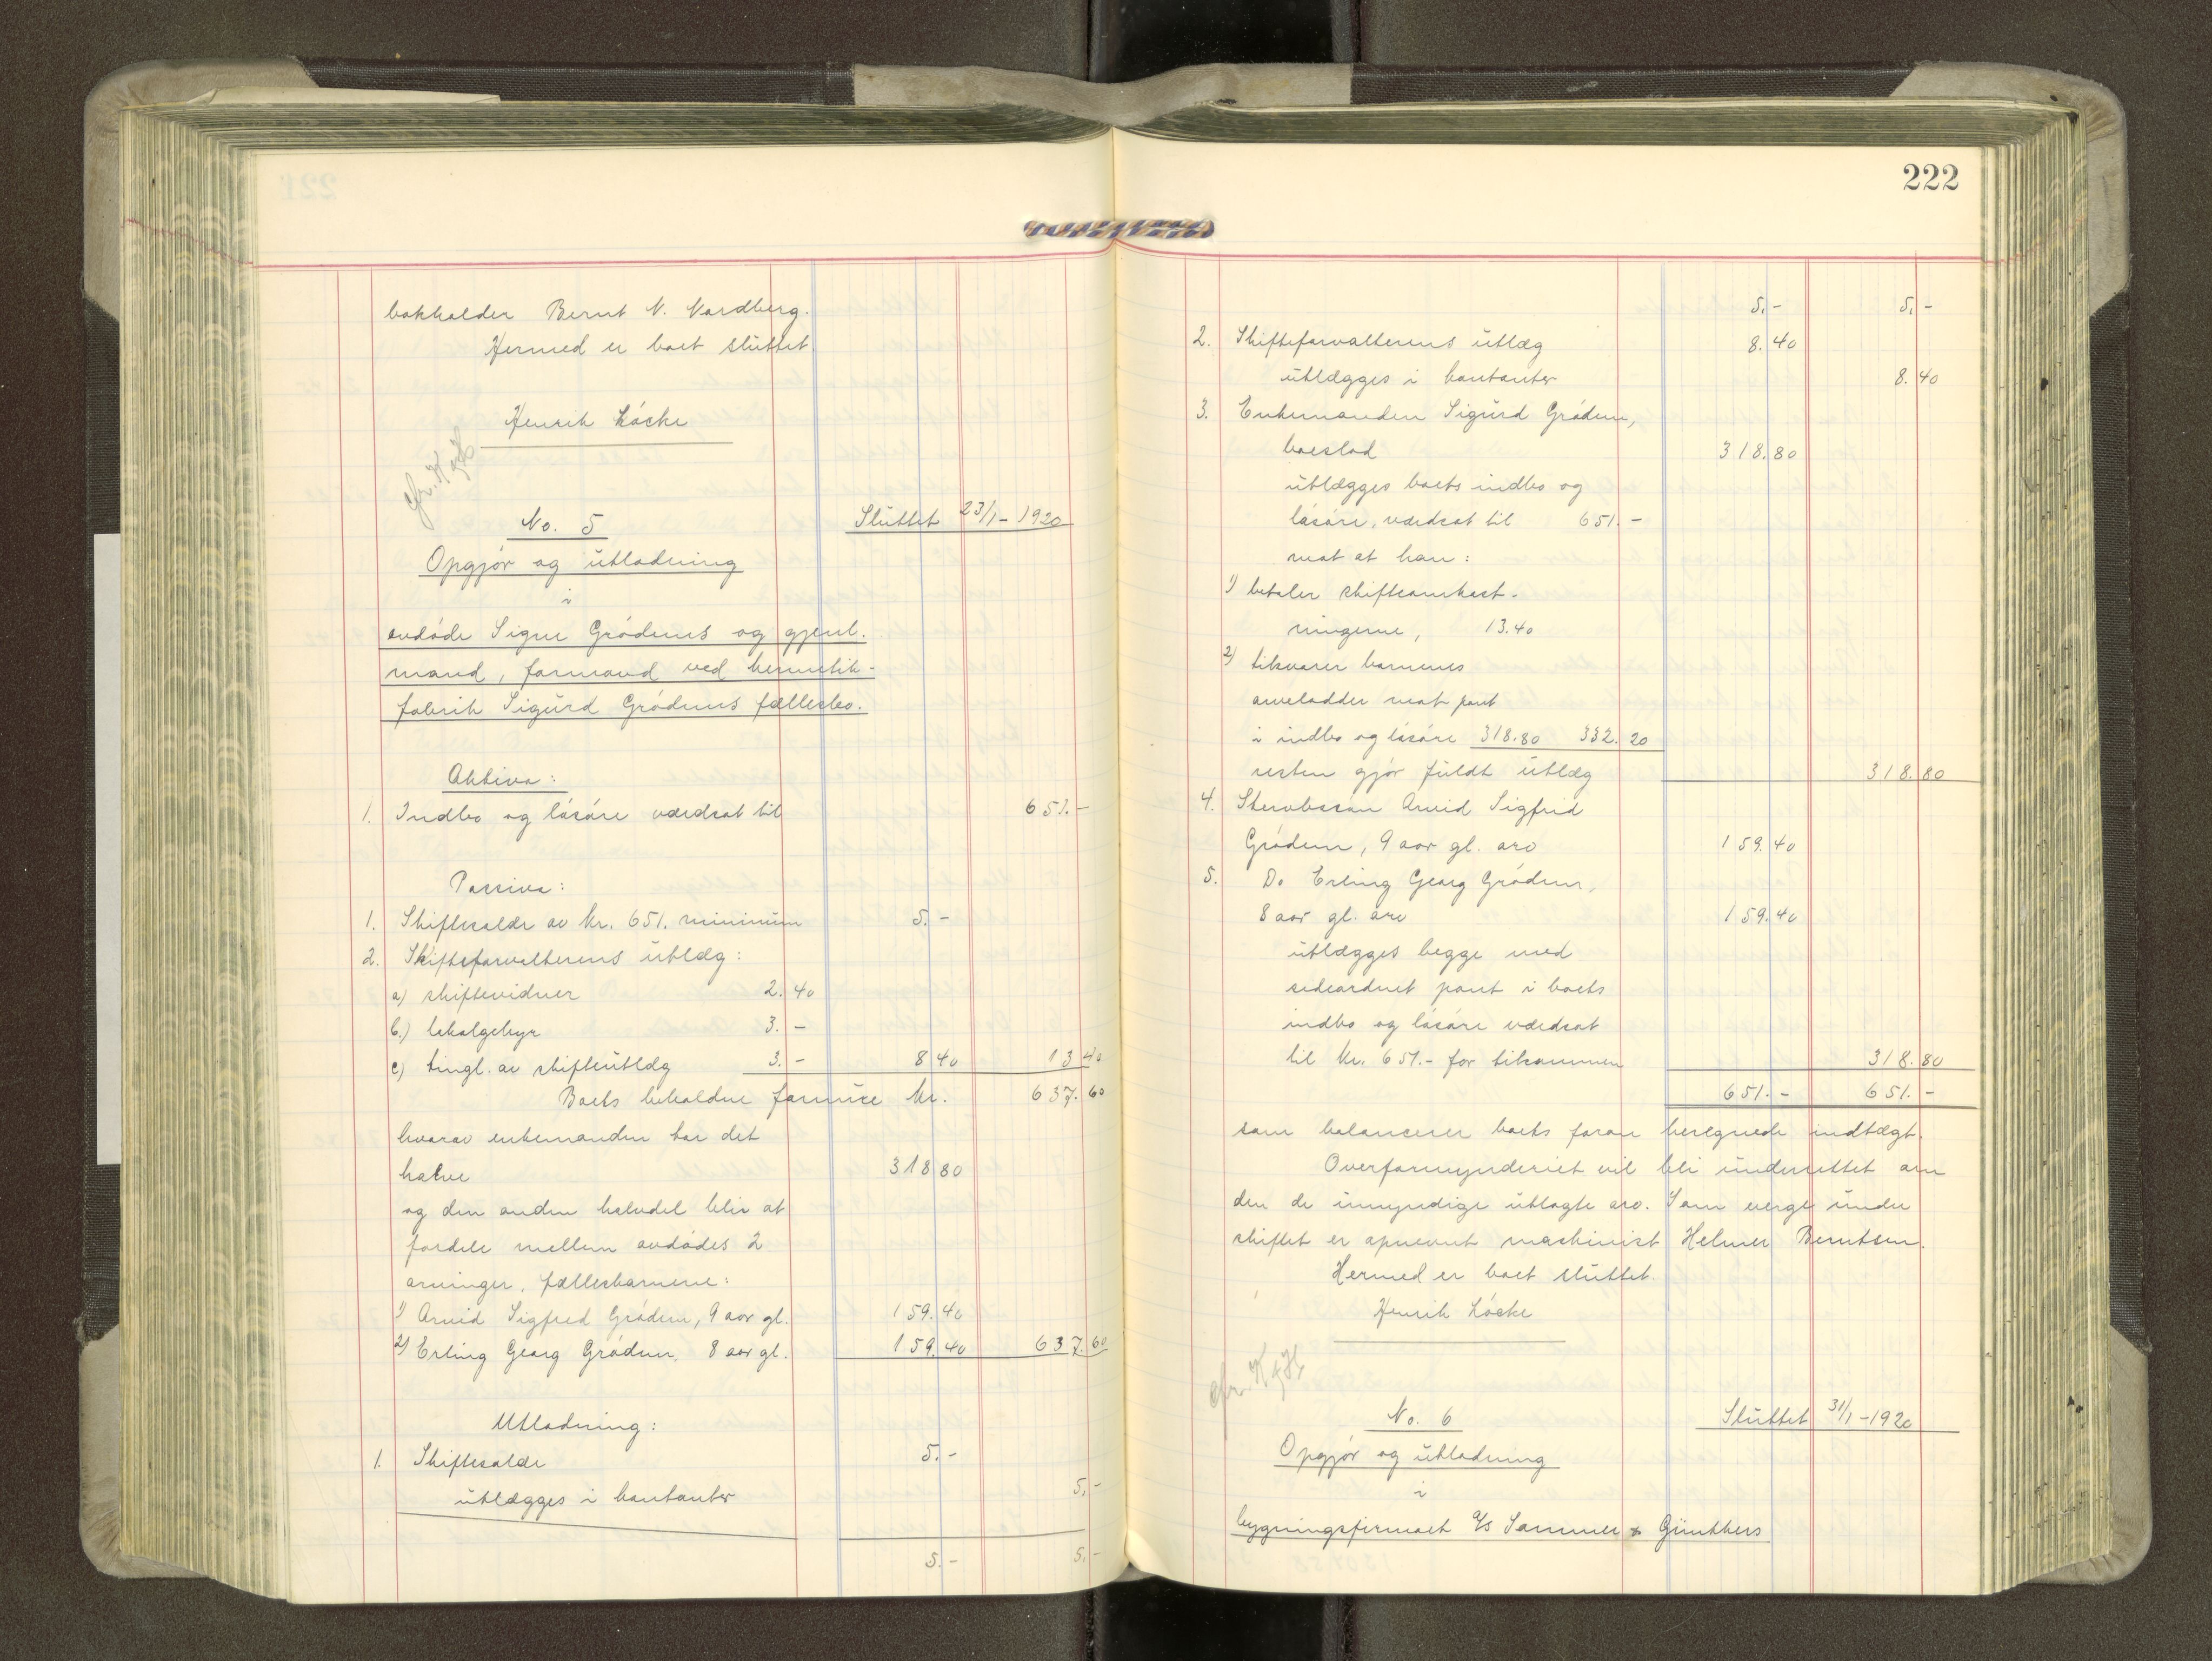 bokholder Bernt N. Nordberg.
Hermed er boet sluttet.
Henrik Löcke
cfr. K
No. 5
Sluttet 23/1-1920
Opgjör og utlodning
i
avdöde Signe Grödems og gjenl.
mand, formand ved hermetik-
fabrik Sigurd Grödems fællesbo.
Aktiva:
1. Indbo og lösöre værdsat til 651.-
Passiva:
1. Skiftesalær av kr. 651. minimum 5.-
2. Skifteforvalterens utlæg:
a) skiftevidner 2.40
b.) lokalgebyr 3.-
c) tingl. av skifteutlæg 3.- 8 40 13 40
Boets beholdne formue kr. 637.60
hvorav enkemanden tar det
halve 318 80
og den anden halvdel blir at
fordele mellem avdödes 2
arvinger, fællesbarnene:
1) Arvid Sigfred Grödem, 9 aar gl. 159.40
2) Erling Georg Grödem, 8 aar gl. 159.40 637.60
Utlodning:
1. Skiftesalær 5.-
utlægges i kontanter 5.-
5.- 5.-
222
5.- 5.-
2. Skifteforvalterens utlæg 8.40
utlægges i kontanter 8.40
3. Enkemanden Sigurd Grödem,
boeslod 318.80
utlægges boets indbo og
lösöre, værdsat til 651.-
mot at han:
1) betaler skifteomkost-
ningerne, 13.40
2) tilsvarer barnenes
arvelodder mot pant
i indbo og lösöre 318.80 332.20
resten gjör fuldt utlæg 318.80
4. Stervbssön Arvid Sigfrid
Grödem, 9 aar gl. arv 159.40
5. Do Erling Georg Grödem,
8 aar gl. arv 159.40
utlægges begge med
sideordnet pant i boets
indbo og lösöre værdsat
til kr. 651.- for tilsammen 318.80
651.- 651.-
som balancerer boets foran beregnede indtægt.
Overformynderiet vil bli underrettet om
den de umyndige utlagte arv. Som verge under
skiftet er opnevnt maskinist Helmer Berntsen.
Hermed er boet sluttet.
Henrik Löcke
cfr. K
No. 6
Sluttet 31/1-1920
Opgjör og utlodning
i
bygningsfirmaet a/s Sommer & Günthers